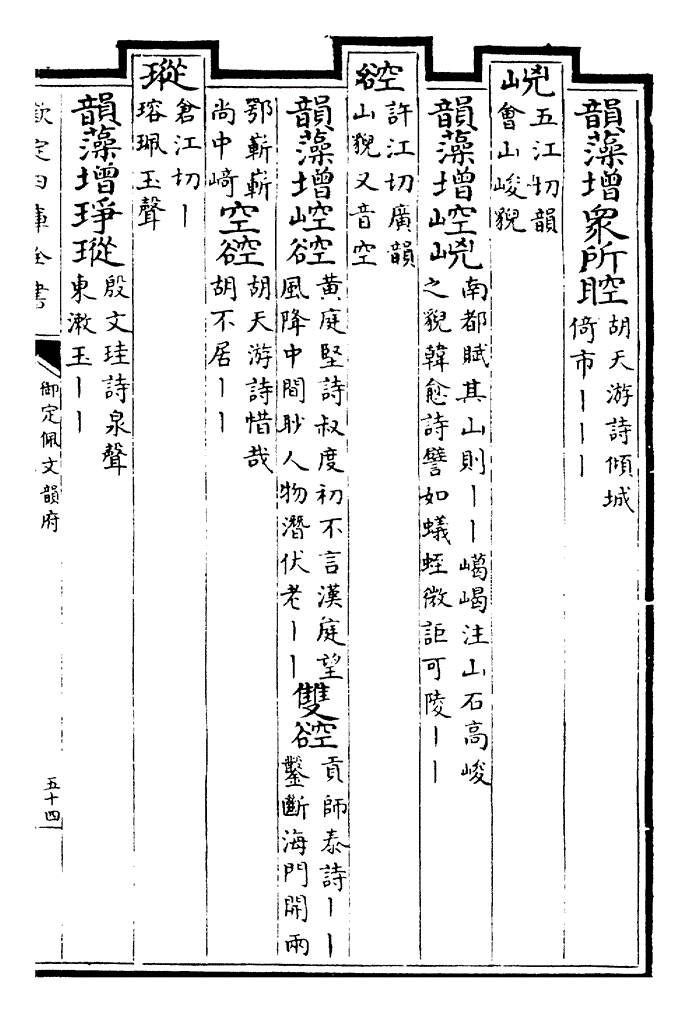 韻藻增眾所聜胡天游詩傾城
倚市丨丨丨
㟅五江切韻
會山峻貌
韻藻增崆㟅南都賦其山則丨丨嶱嵑注山石高峻
之貌韓愈詩譬如蟻蛭微詎可陵丨丨
谾許江切廣韻
山貌又音空
韻藻增崆谾黃庭堅詩叔度初不言漢庭望
風降中間眇人物潛伏老丨丨
雙谾貢師泰詩丨丨
鑿斷海門開兩
鄂嶄嶄
尚中﨑
空谾胡天游詩惜哉
胡不居丨丨
瑽倉江切丨
瑢珮玉聲
韻藻增琤瑽殷文珪詩泉聲
東漱玉丨丨
欽定四庫全書
御定佩文韻府
五十四